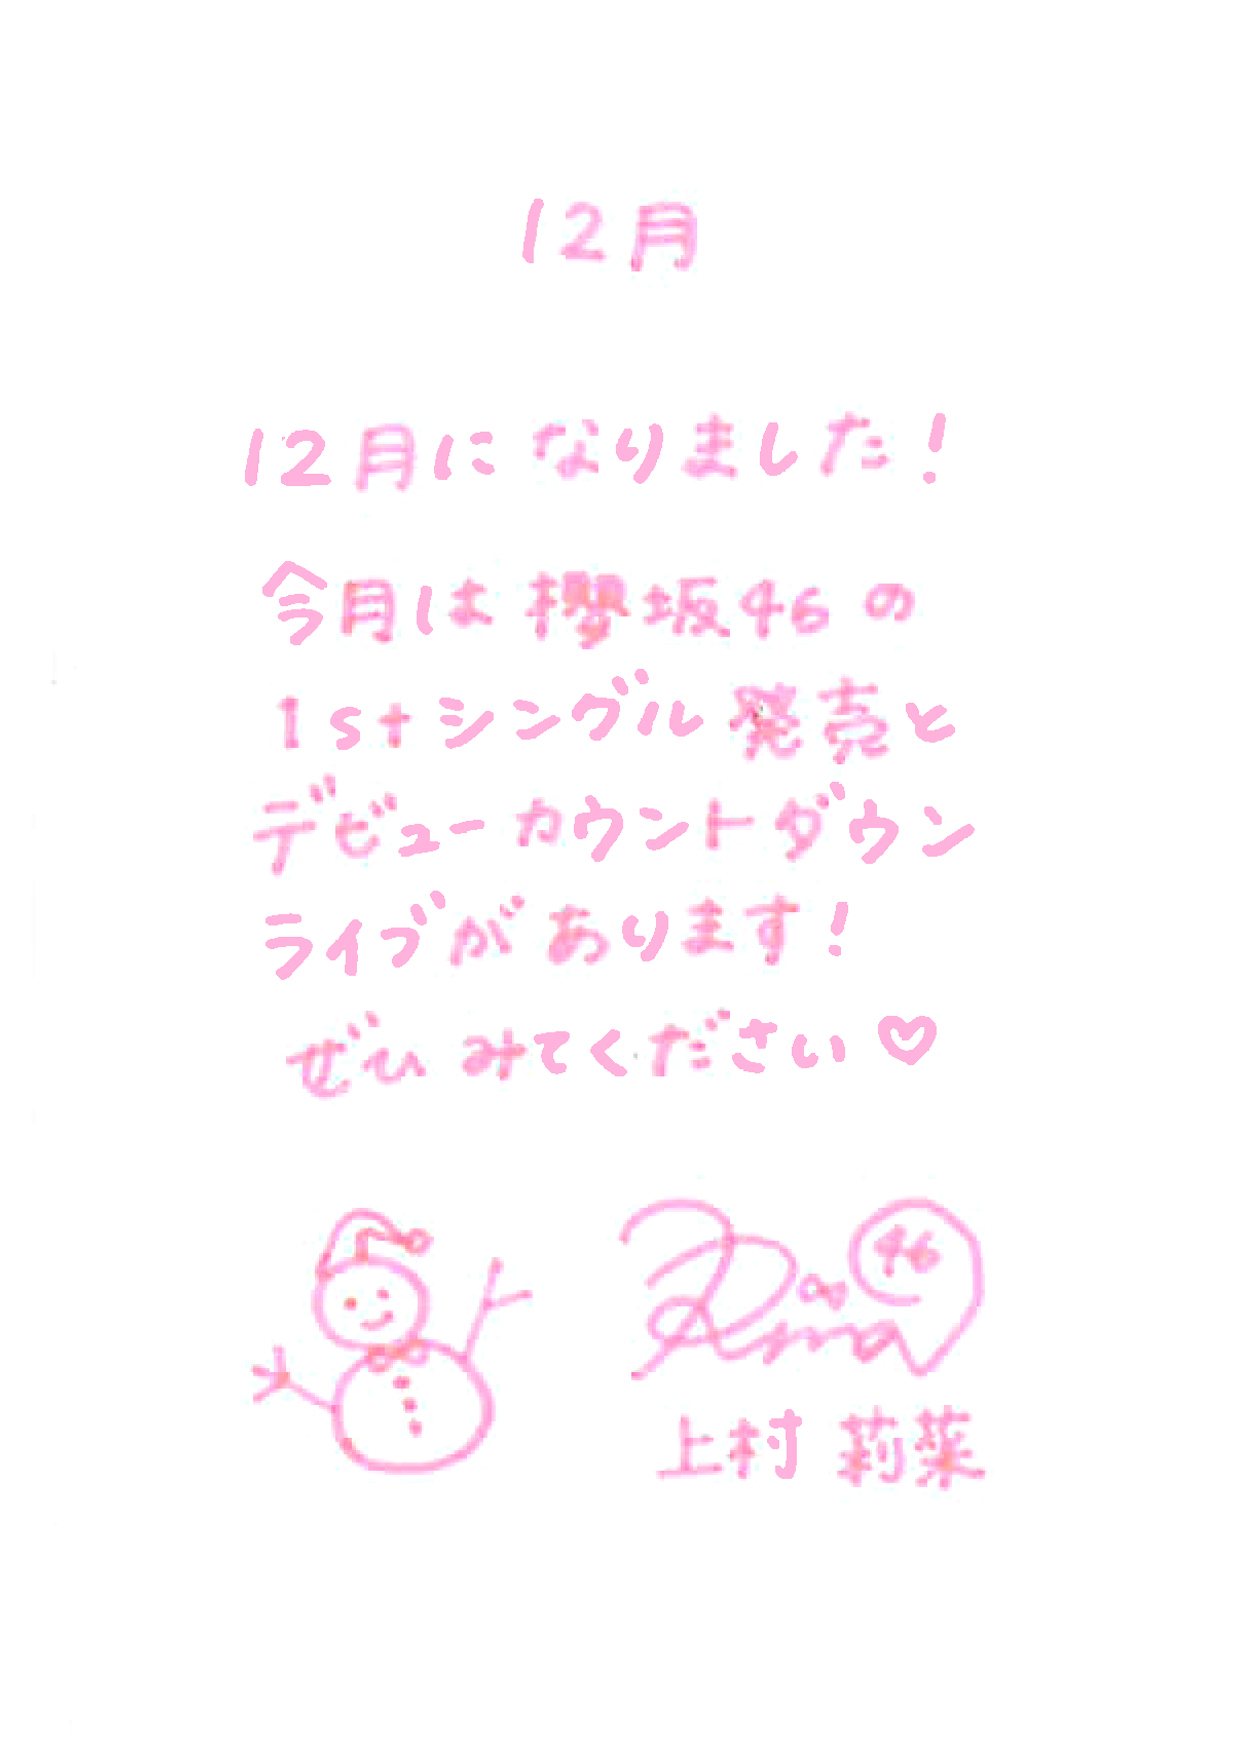 12月
12月になりました!
今月は櫻坂46の
1stシングル発売と
デビューカウントダウン
ライブがあります!
ぜひみてください♡
Rina 46
上村 莉菜